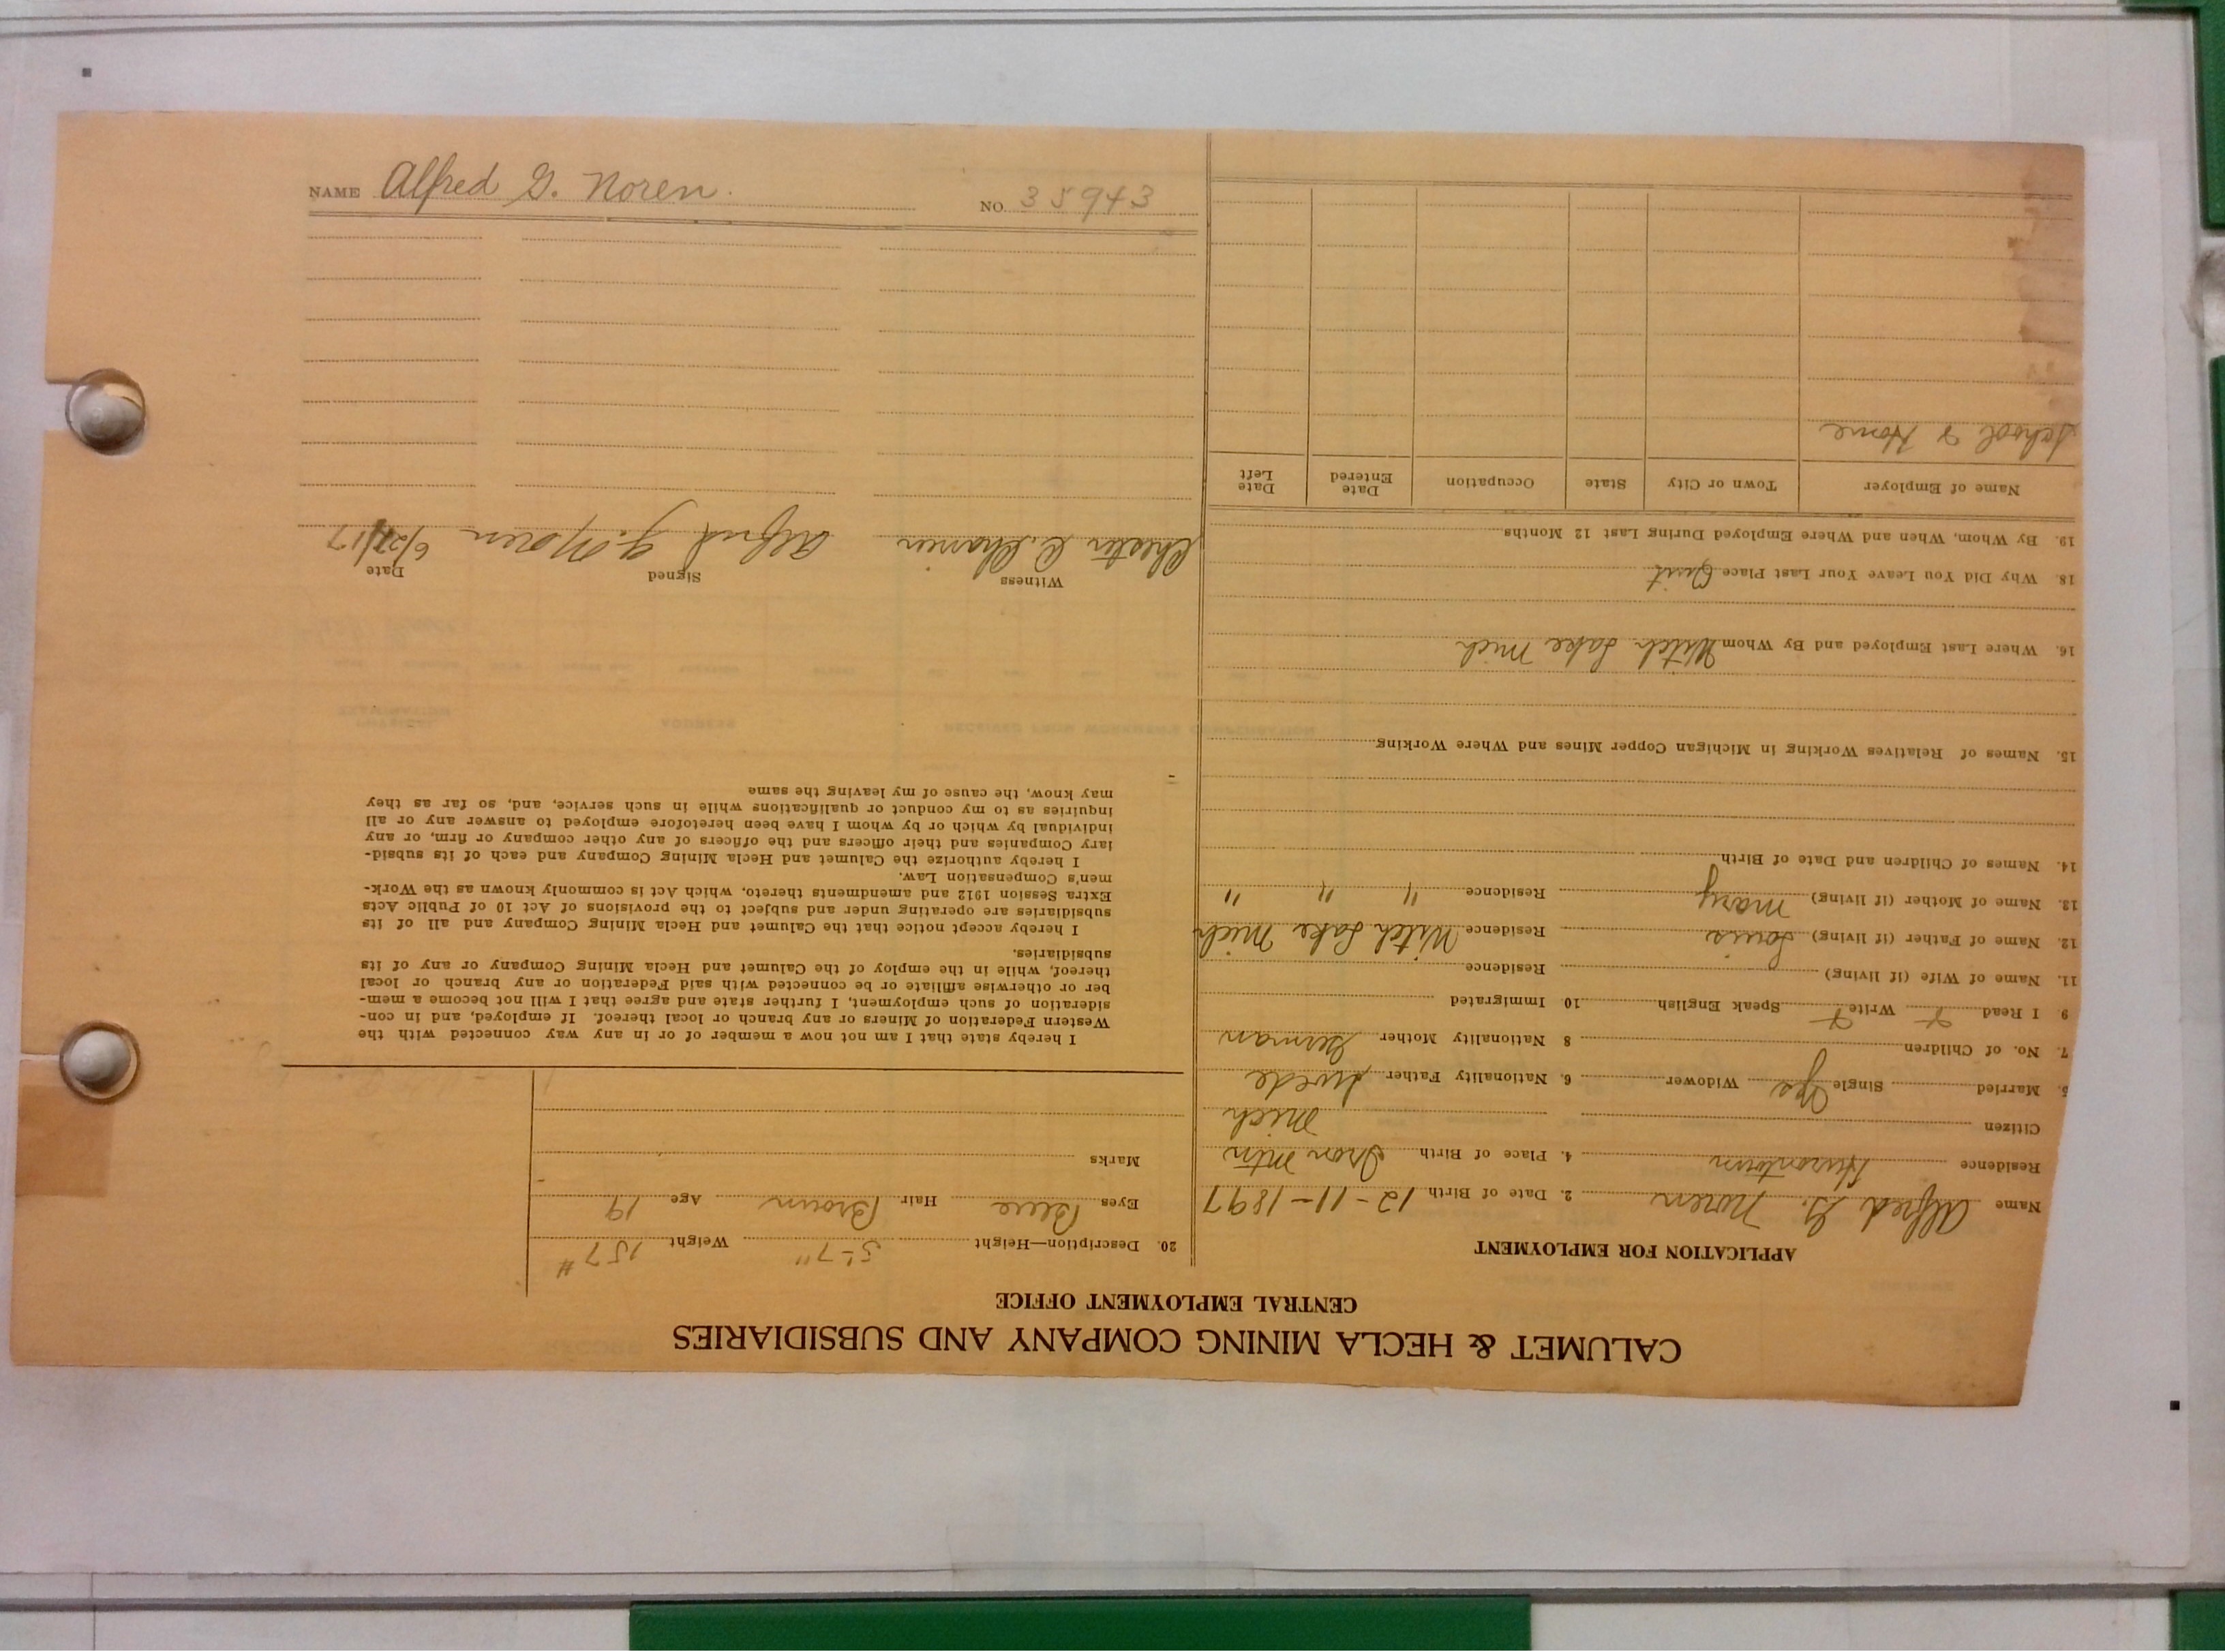 NAME Alfred G. Noren. NO. 35943
CALUMET & HECLA MINING COMPANY AND SUBSIDIARIES
CENTRAL EMPLOYMENT OFFICE
APPLICATION FOR EMPLOYMENT
Name Alfred G. Noren 2. Date of Birth 12-11-1897
Residence Hurontown 4. Place of Birth Iron Mtn
Citizen Mich
5. Married Single Yes Widower 6. Nationality Father Swede
7. No. of Children 8 Nationality Mother German
9. I Read Write Speak English 10 Immigrated
11. Name of Wife (if living) Residence
12. Name of Father (if living) Louis Residence Witch Lake Mich
13. Name of Mother (if living) Mary Residence " " "
14. Names of Children and Date of Birth
15. Names of Relatives Working in Michigan Copper Mines and Where Working
16. Where Last Employed and By Whom Witch Lake Mich
18. Why Did You Leave Your Last Place Quit
19. By Whom, When and Where Employed During Last 12 Months
Name of Employer Town or City State Occupation Date Entered Date Left
School & Home
20. Description—Height 5'-7" Weight 157 #
Eyes Blue Hair Brown Age 19
Marks
I hereby state that I am not now a member of or in any way connected with the
Western Federation of Miners or any branch or local thereof. If employed, and in con-
sideration of such employment, I further state and agree that I will not become a mem-
ber or otherwise affiliate or be connected with said Federation or any branch or local
thereof, while in the employ of the Calumet and Hecla Mining Company or any of its
subsidiaries.
I hereby accept notice that the Calumet and Hecla Mining Company and all of its
subsidiaries are operating under and subject to the provisions of Act 10 of Public Acts
Extra Session 1912 and amendments thereto, which Act is commonly known as the Work-
men's Compensation Law.
I hereby authorize the Calumet and Hecla Mining Company and each of its subsid-
iary Companies and their officers and the officers of any other company or firm, or any
individual by which or by whom I have been heretofore employed to answer any or all
inquiries as to my conduct or qualifications while in such service, and, so far as they
may know, the cause of my leaving the same
Witness Signed Date
Chester C. Alfred G. Noren